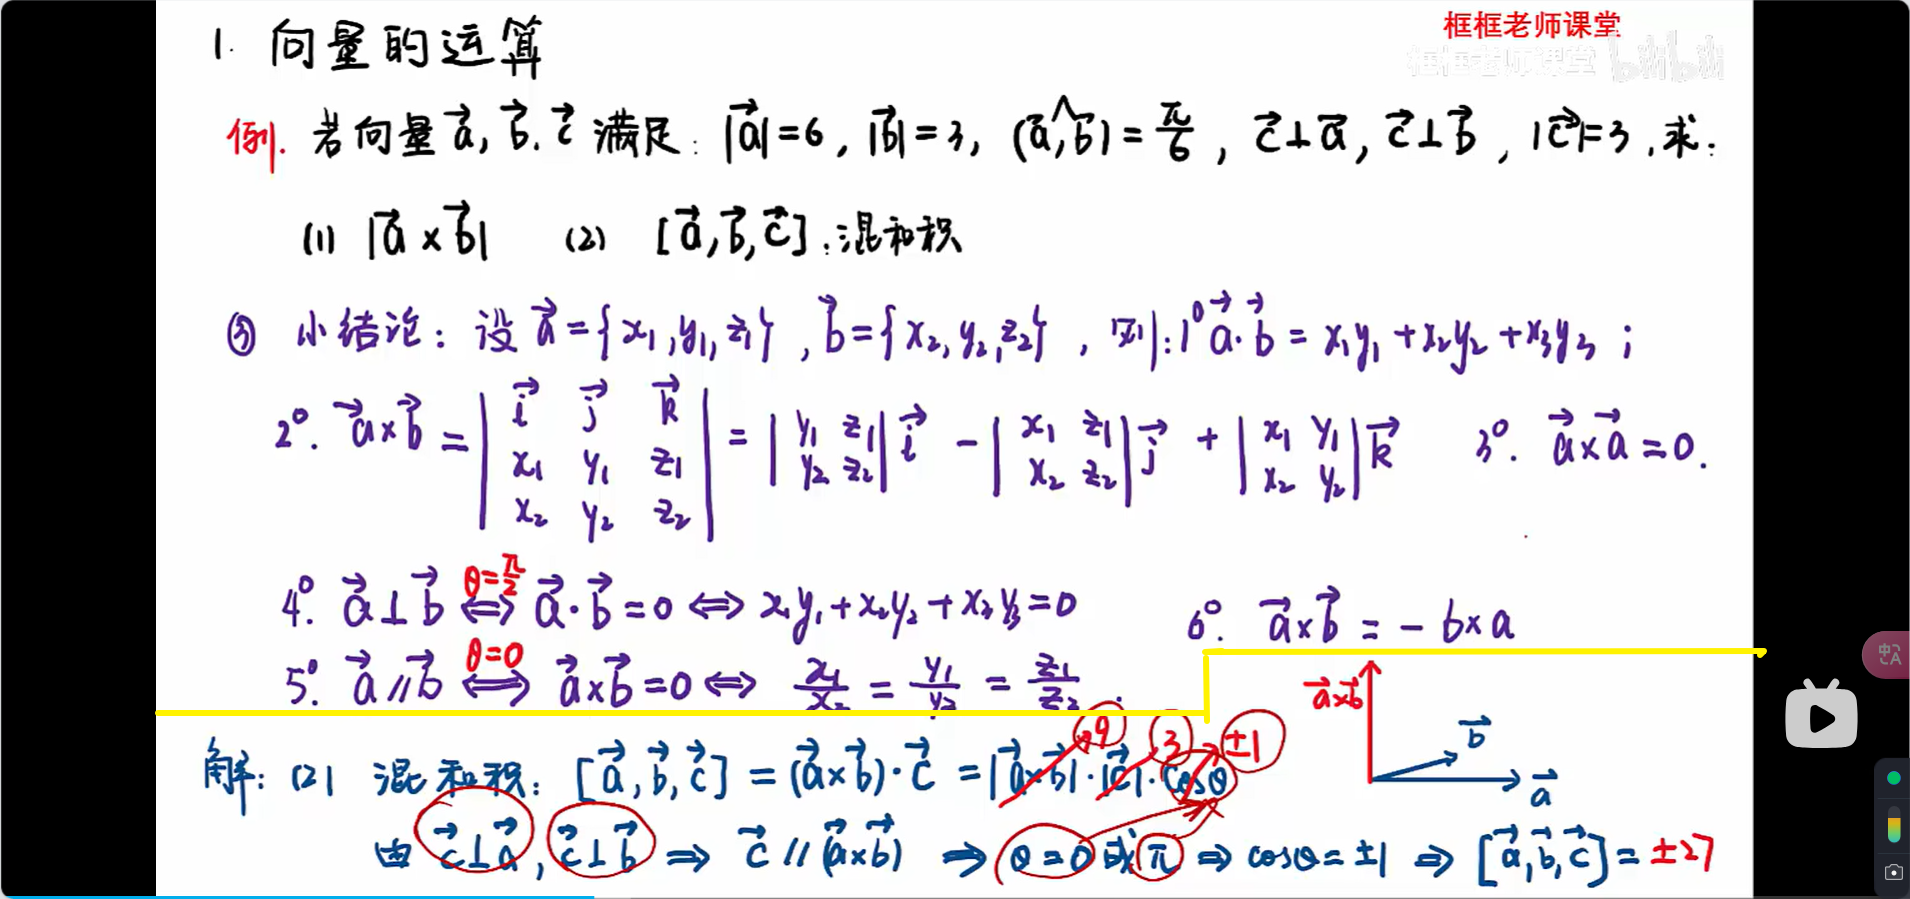 框框老师课堂
框框老师课堂 bilibili
1. 向量的运算
例. 若向量 a⃗, b⃗, c⃗ 满足: |a⃗|=6, |b⃗|=3, (a⃗,^b⃗)=π/6, c⃗⊥a⃗, c⃗⊥b⃗, |c⃗|=3, 求:
(1) |a⃗×b⃗| (2) [a⃗,b⃗,c⃗]:混和积
③ 小结论: 设 a⃗={x₁,y₁,z₁}, b⃗={x₂,y₂,z₂}, 则: 1° a⃗·b⃗=x₁y₁+x₂y₂+x₃y₃;
2°. a⃗×b⃗ = |i⃗ j⃗ k⃗; x₁ y₁ z₁; x₂ y₂ z₂| = |y₁ z₁; y₂ z₂| i⃗ - |x₁ z₁; x₂ z₂| j⃗ + |x₁ y₁; x₂ y₂| k⃗ 3°. a⃗×a⃗=0.
4°. a⃗⊥b⃗ ⇔ θ=π/2 a⃗·b⃗=0 ⇔ x₁y₁+x₂y₂+x₃y₃=0
6°. a⃗×b⃗ = - b×a
5°. a⃗∥b⃗ ⇔ θ=0 a⃗×b⃗=0 ⇔ x₁/x₂ = y₁/y₂ = z₁/z₂.
a⃗×b⃗
b⃗
a⃗
9 3 ±1
解: (2) 混和积: [a⃗,b⃗,c⃗]=(a⃗×b⃗)·c⃗=|a⃗×b⃗|·|c⃗|·cosθ
由 c⃗⊥a⃗, c⃗⊥b⃗ ⇒ c⃗∥(a⃗×b⃗) ⇒ θ=0或π ⇒ cosθ=±1 ⇒ [a⃗,b⃗,c⃗]=±27
中A